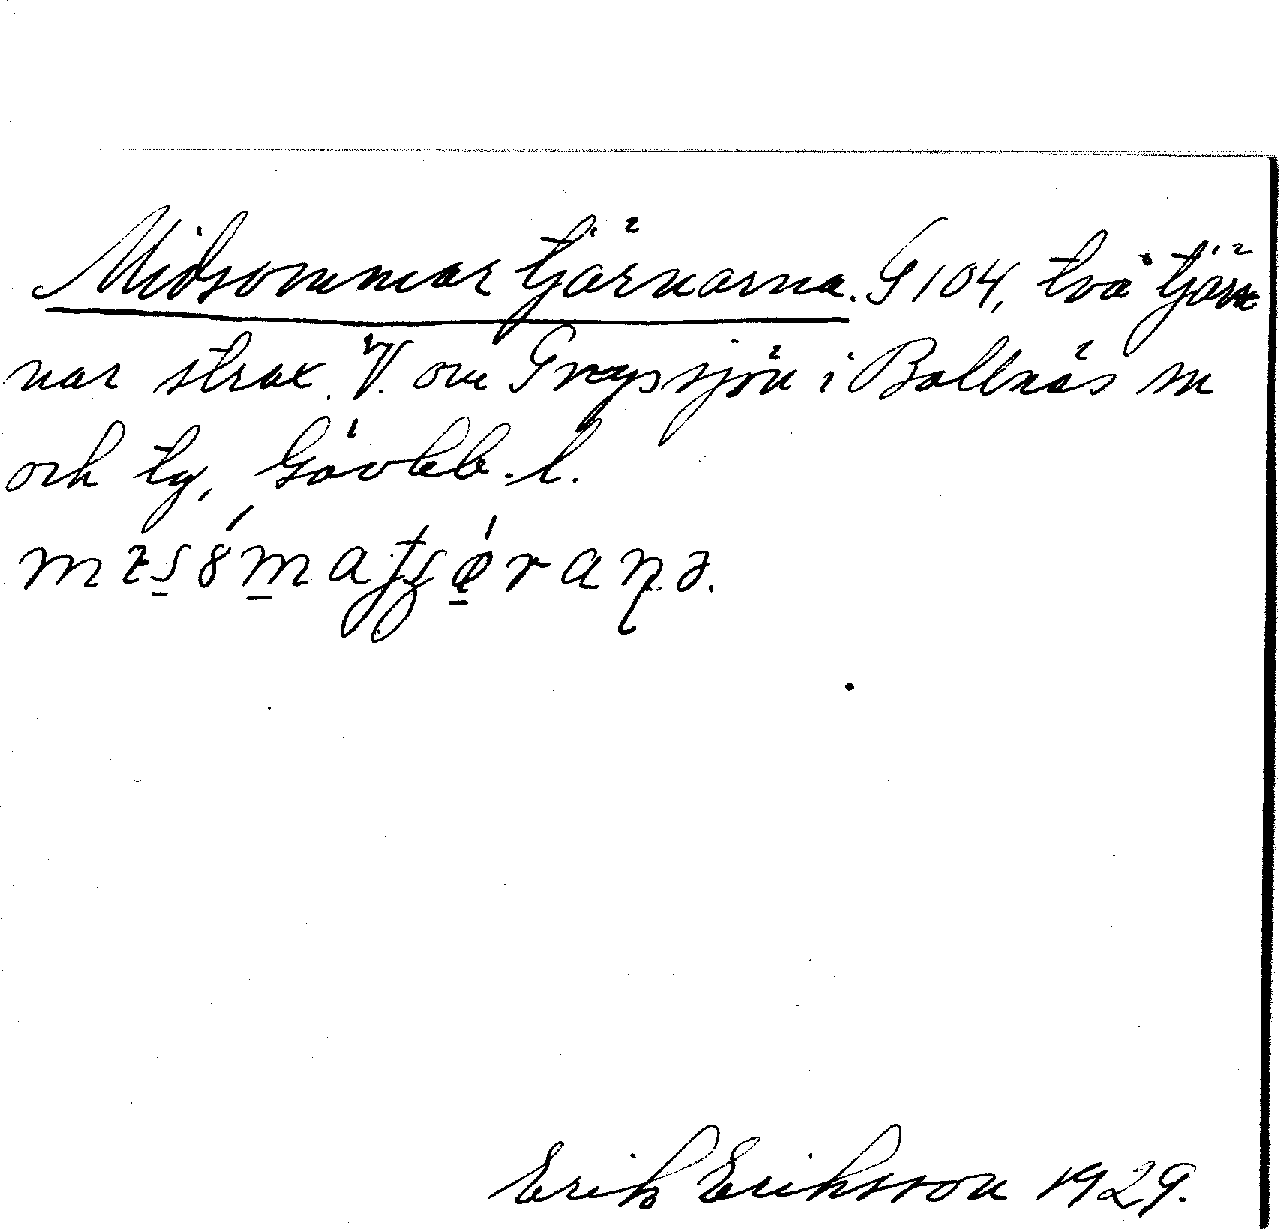 Midsommartjärnarna. G 104, två tjär-
nar strax V. om Gryssjön i Bollnäs sn
och tg, Gävleb. l.
Erik Eriksson 1929.